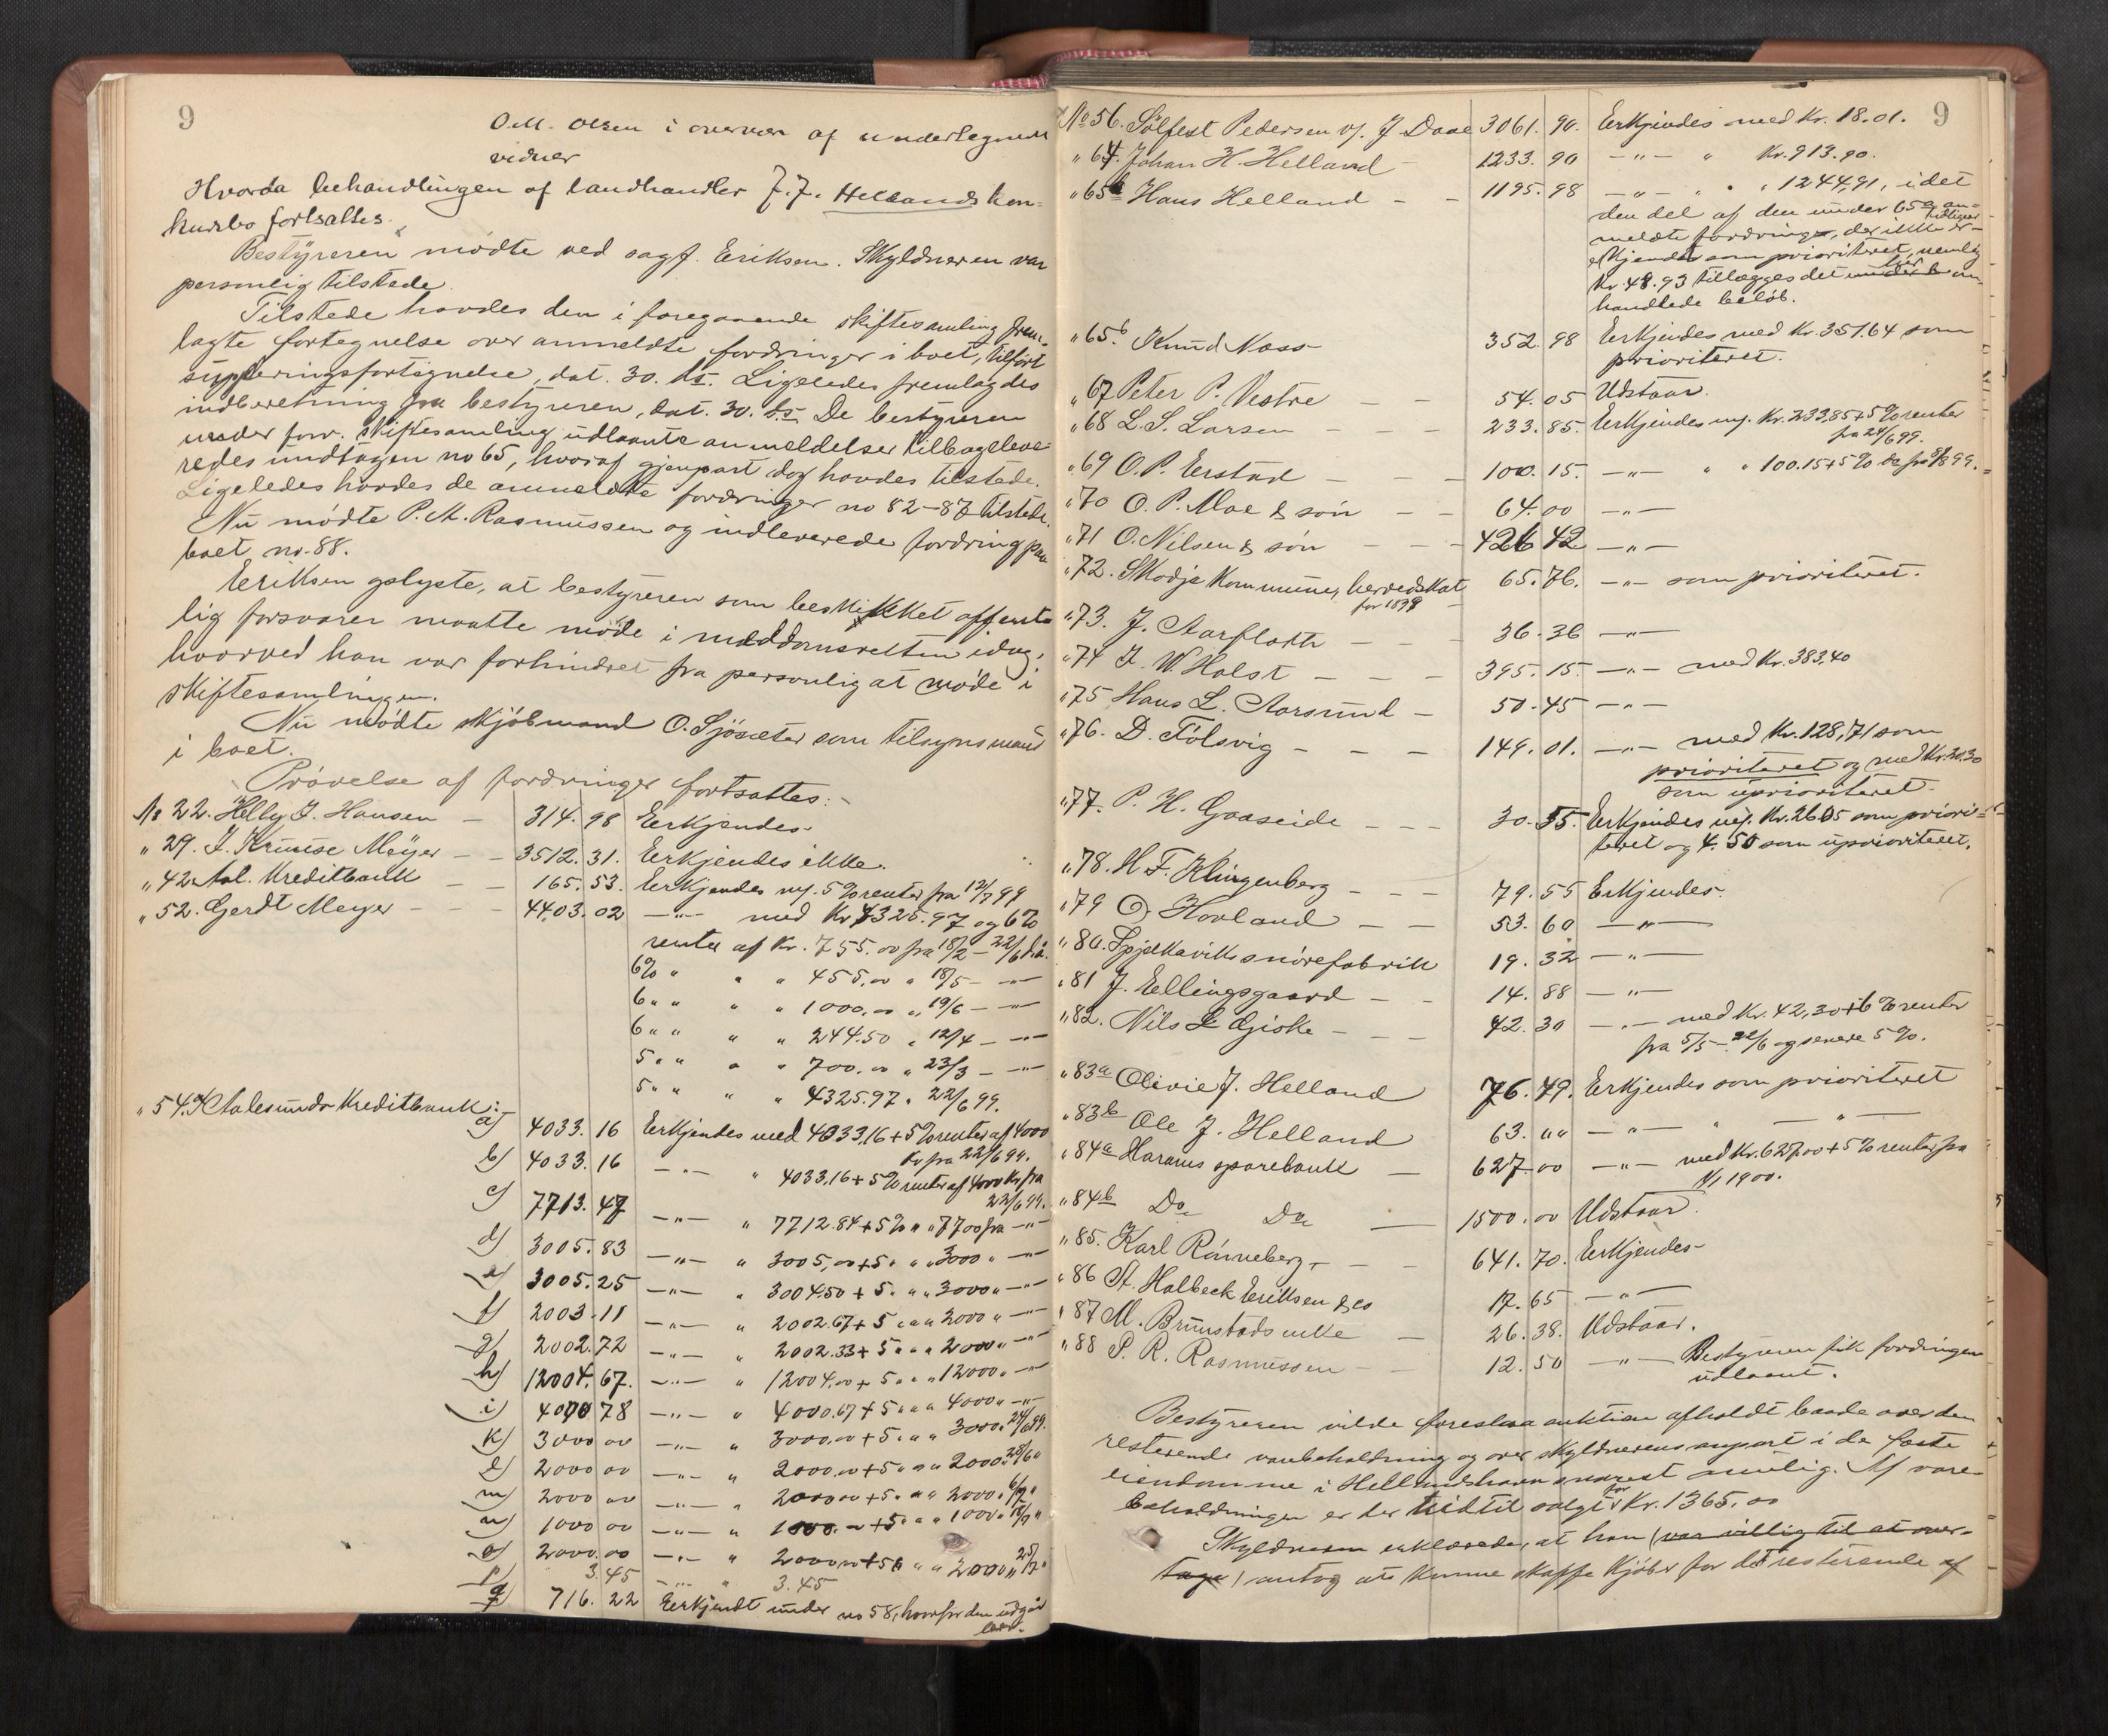 9
O.M. Olsen i overvær af undertegnede
vidner
Hvorda behandlingen af landhandler J.J. Hellands kon-
kursbo fortsattes.
Bestyreren mødte ved sagf. Eriksen. Skyldneren var
personlig tilstede.
Tilstede havdes den i foregaaende skiftesamling frem-
lagte fortegnelse over anmeldte fordringer i boet, tilført
suppleringsfortegnelse, dat. 30. ds. Ligeledes fremlagdes
indberetning fra bestyreren, dat. 30. ds. De bestyreren
under forr. skiftesamling udlaante anmeldelser tilbagleve-
redes undtagen no 65, hvoraf gjenpart dog havdes tilstede.
Ligeledes havdes de anmeldte fordringer no 82-87 tilstede.
Nu mødte P.A. Rasmussen og indleverede fordring paa
boet, no. 88.
Eriksen oplyste, at bestyreren som beskikket offent-
lig forsvarer maatte møde i meddomsretten idag,
hvorved han var forhindret fra personlig at møde i
skiftesamlingen.
Nu mødte kjøbmand O. Sjøsæter som tilsynsmand
i boet.
Prøvelse af fordringer fortsattes:-
No 22. Helly J. Hansen - 314. 98 Erkjendes.
" 29. J. Kruuse Meyer - - 3512. 31. Erkjendes ikke.
" 42. Aal. Kreditbank - - 165. 53. Erkjendes m/. 5% renter fra 12/7 99
" 52. Gerdt Meyer - - - 4403. 02 -"- med Kr. 4325.97 og 6%
renter af Kr. 755.00 fra 18/2 - 22/6 d.å.
6% " " " 455,00 " 18/5 - -"-
6 " " " " 1000,00 " 19/6 - -"-
6 " " " " 244.50 " 12/4 - -"-
5 " " " " 700.00 " 23/3 - -"-
5 " " " " 4325.97 " 22/6 99.
" 54. Aalesunds Kreditbank:
a) 4033. 16 Erkjendes med 4033,16 + 5% renter af 4000
Kr fra 22/6 99.
b) 4033. 16 -"- " 4033,16 + 5% renter af 4000 Kr fra
22/6 99.
c) 7713. 47 -"- " 7712.84 + 5% " " 7700 fra -"-
d) 3005. 83 -"- " 3005,00 + 5 " " " 3000 " -"-
e) 3005. 25 -"- " 3004.50 + 5 " " " 3000 " -"-
f) 2003. 11 -"- " 2002.67 + 5 " " " 2000 " -"-
g) 2002. 72 -"- " 2002.33 + 5 " " " 2000 " -"-
h) 12004. 67. -"- " 12004,00 + 5 " " " 12000 " -"-
i) 4000 78 -"- " 4000.67 + 5 " " " 4000 " -"-
k) 3000 00 -"- " 3000,00 + 5 " " " 3000 " 24/6 99.
l) 2000 00 -"- " 2000,00 + 5 " " " 2000 " 28/6 "
m) 2000 00 -"- " 2000 00 + 5 " " " 2000 " 6/7 "
n) 1000 00 -"- " 1000.00 + 5 " " " 1000 "
o) 2000.00 -"- " 2000 00 + 5 " " " 2000 " 25/7 "
p) 3.45 -"- " 3.45
q) 716. 22 Erkjendt under no 58, hvorfor den udgår
her.
9
No 56. Sølfest Pedersen v/. J Daae 3061. 90. Erkjendes med Kr. 18.01.
" 64. Johan H. Helland - 1233. 90 -"- " Kr. 913.90.
" 65 Hans Helland - - 1195. 98 -"- " " " 1244,91, idet
den del af den under 65a an-
meldte fordringer, der ikke er-
kjendes som prioriteret, nemlig
Kr. 48.93 tillægges det her under b om-
handlede beløb.
" 65b Knud Næss 352. 98 Erkjendes med Kr. 351.64 som
prioriteret.
" 67 Peter P. Vestre - - 54. 05 Udstaar.
" 68 L. S. Larsen - - - 233. 85. Erkjendes m/. Kr. 233,85 + 5% renter
fra 24/6 99.
" 69 O. P. Erstad - - - 100. 15. -"- " " 100.15 + 5% do fra 9/8 99.
" 70 O. P. Moe & søn - - 64. 00 -"-
" 71 O. Nilsen & søn - - - 426 42 -"-
" 72. Skodje Kommune, herredskat 65. 76. -"- som prioriteret.
for 1899
" 73. J. Aarfloth - - 36. 36 -"-
" 74 J. W. Holst - - - 395. 15. -"- med Kr. 383,40
" 75 Hans L. Aarsund - 50. 45 -"-
" 76. D. Tólsvig - - - 149. 01. -"- med Kr. 128,71 som
prioriteret og med Kr. 20.30
som uprioriteret.
" 77. P. H. Gaaseide - - - 30. 55. Erkjendes m/. Kr. 26.05 som priori-
teret og 4.50 som uprioriteret.
" 78. H. F. Klingenberg - - - 79. 55 Erkjendes.
" 79 O. Hovland - - 53. 60 -"-
" 80. Spjelkaviks snørefabrik 19. 32 -"-
" 81 J. Ellingsgaard - - 14. 88 -"-
" 82. Nils L Giske - - - 42. 30 -"- med Kr. 42,30 + 6% renter
fra 5/5 - 22/6 og senere 5%.
" 83a Olivie J. Helland 76. 49. Erkjendes som prioriteret
" 83b Ole J. Helland 63. "" -"- " -"-
" 84a Harams sparebank - 627. 00 -"- med Kr. 627,00 + 5% renter fra
1/1 1900.
" 84b Do Do - 1500. 00 Udstaar.
" 85. Karl Rønneberg - - - 641. 70. Erkjendes
" 86 A. Holbeck Eriksen & co 17. 65 -"-
" 87 M. Brunstads enke - 26. 38. Udstaar.
" 88 P. R. Rasmussen - - 12. 50 -"- Bestyreren fik fordringen
udlaant.
Bestyreren vilde foreslaa auktion afholdt baade over den
resterende varebeholdning og over skyldnerens anpart i de faste
eiendomme i Hellandshavn snarest mulig. Af vare-
beholdningen er der hidtil solgt for Kr. 1365.00
Skyldneren erklærede, at han (var villig til at over-
tage) antog at kunne skaffe kjøber for det resterende af